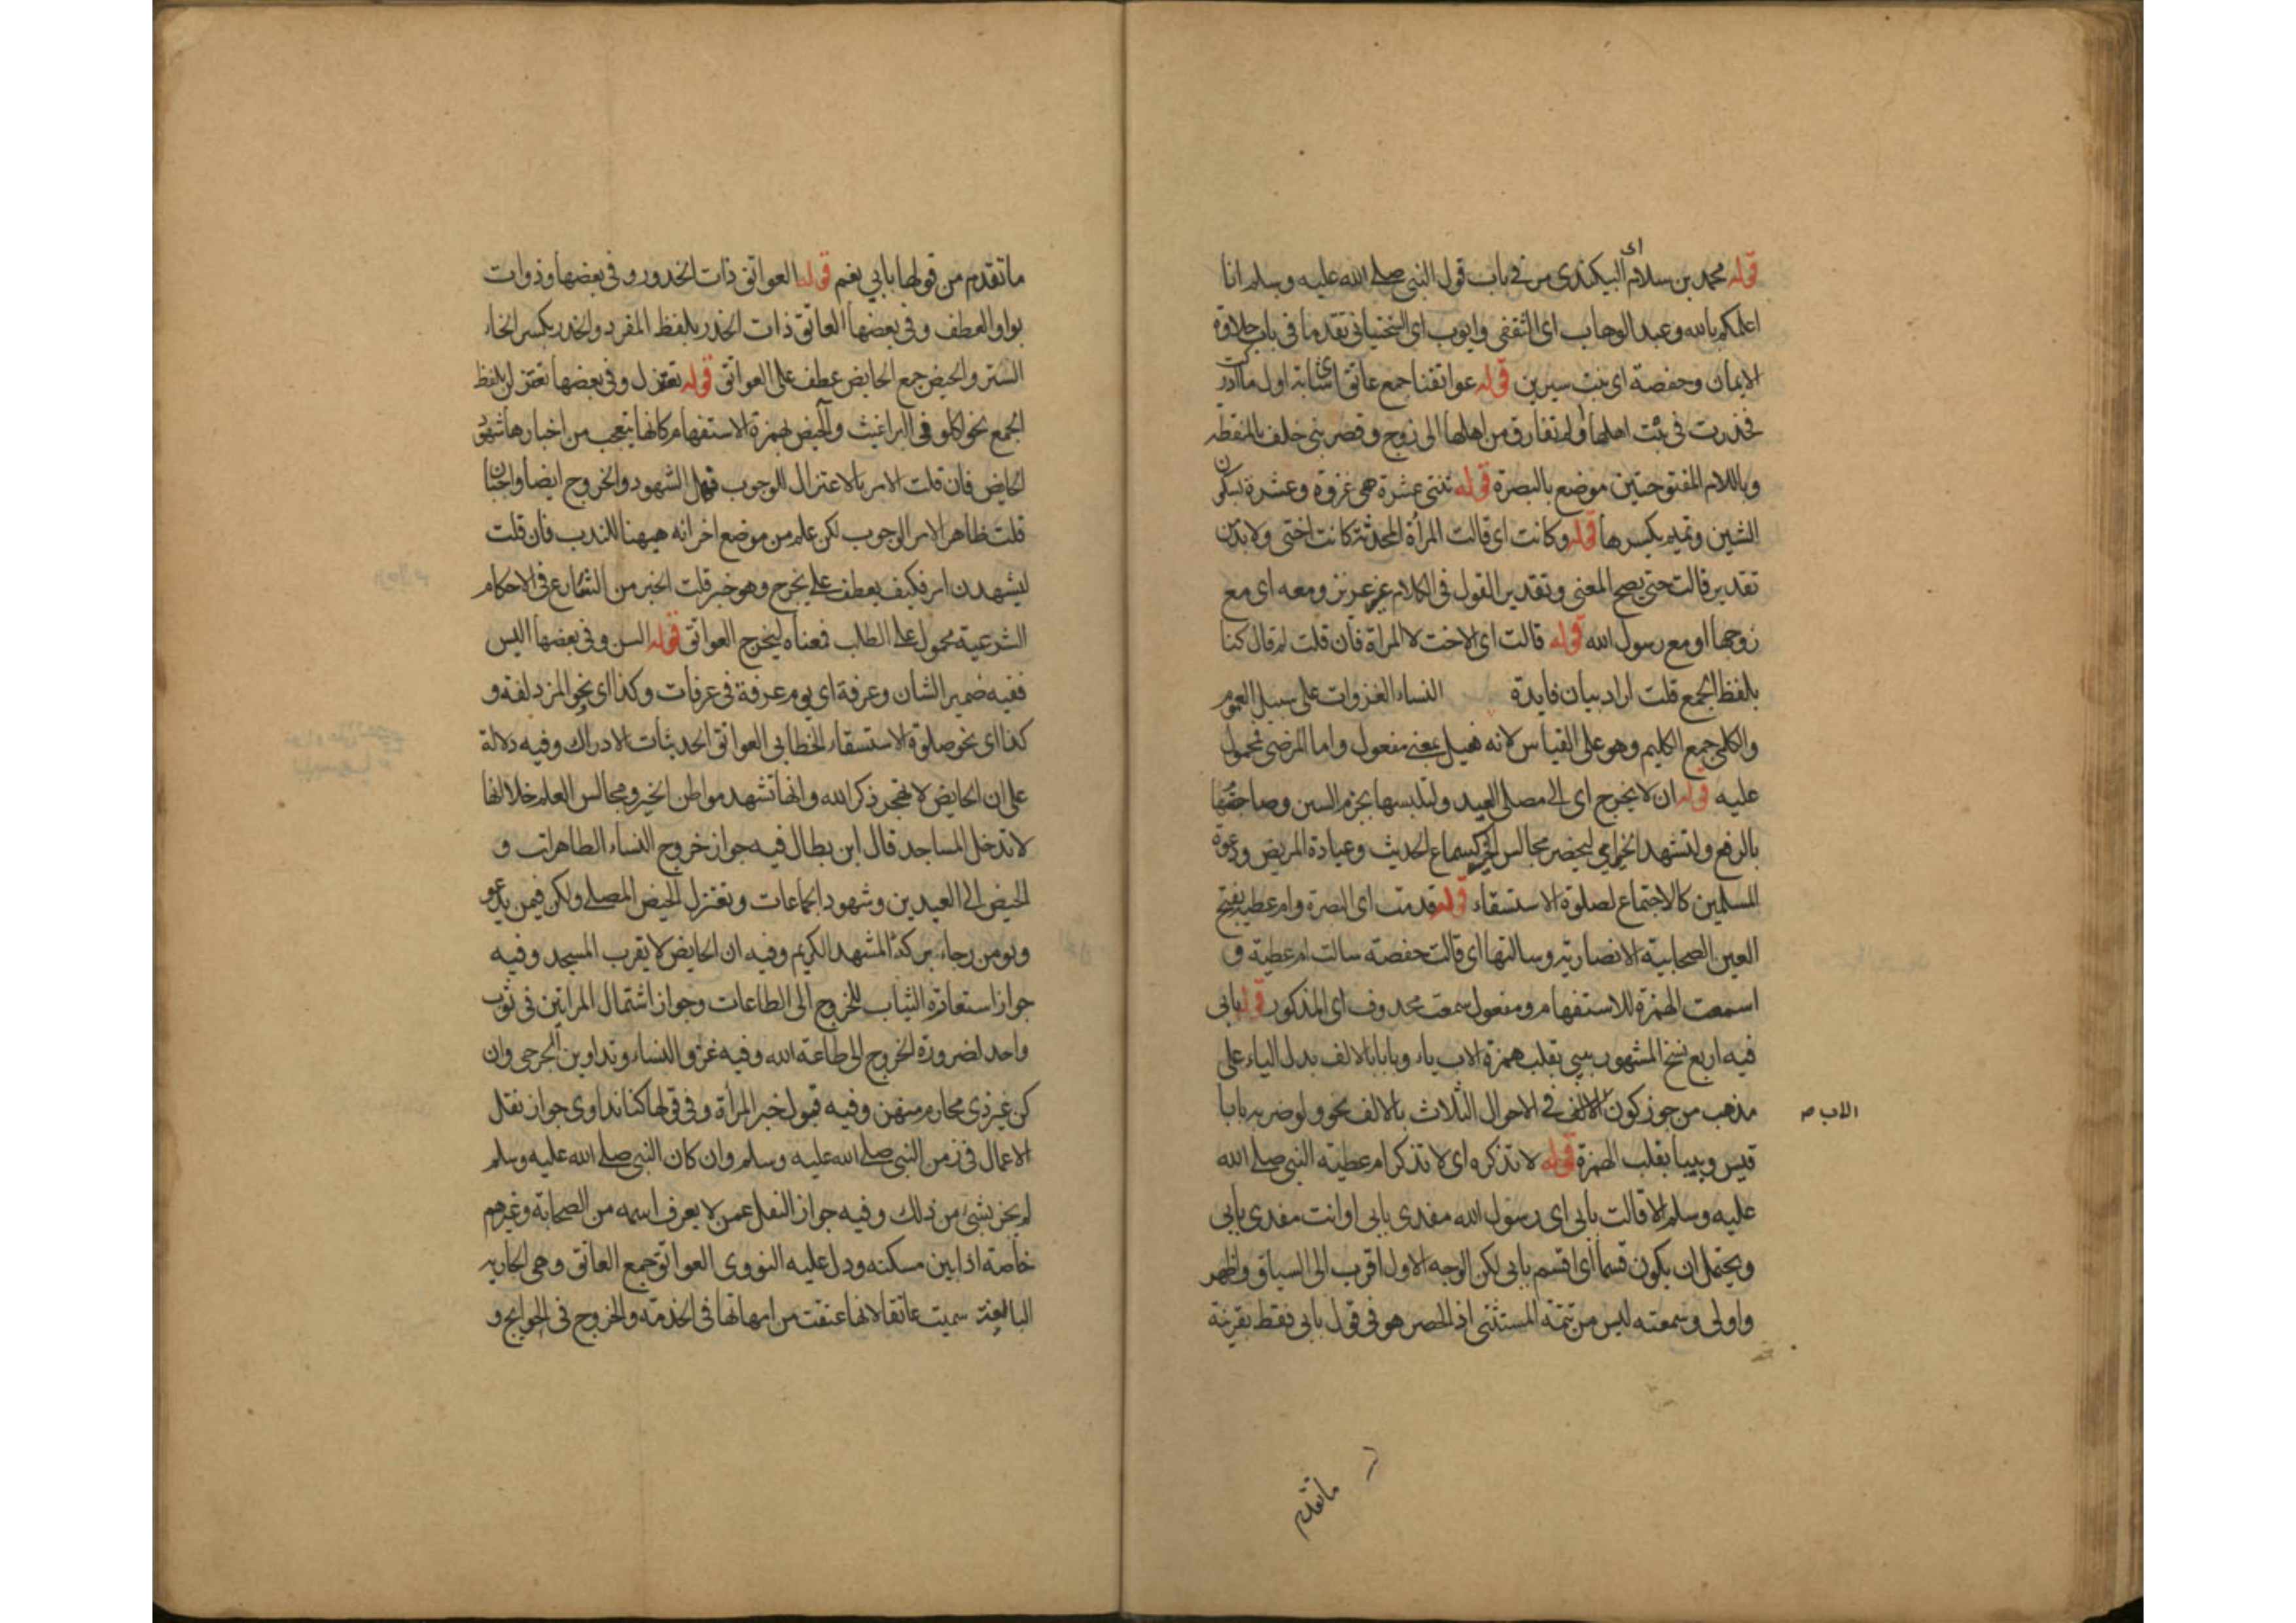 قوله محمد بن سلام اى البيكندى مر فى باب قول النبى صلى الله عليه وسلم انا
اعلمكم بالله وعبد الوهاب اى الثقفى وايوب اى السختيانى تقدما فى باب حلاوة
الايمان وحفصة اى بنت سيرين قوله عواتقنا جمع عاتق اى شابة اول ما ادركت
فخدرت فى بيت اهلها ولم تفارق من اهلها الى زوج وقصر بنى خلف بالمنقطه
وباللام المفتوحتين موضع بالبصرة قوله ثنتى عشرة هى غزوة وعشرة بسكون
الشين وتميم يكسرها قوله وكانت اى قالت المرأة المحدثة كانت اختى ولا بد من
تقدير قالت حتى يصح المعنى وتقدير القول فى الكلام غير عزيز ومعه اى مع
زوجها او مع رسول الله قوله قالت اى الاخت لا المراة فان قلت لم قال كنا
بلفظ الجمع قلت اراد بيان فايدة النساء الغزوات على سبيل العموم
والكلمى جمع الكليم وهو على القياس لانه فعيل بمعنى مفعول واما المرضى فمحمول
عليه قوله ان لا يخرج اى الى مصلى العيد ولتلبسها بجزم السين وصاحبتها
بالرفع ولتشهد الخير اى ليحضر مجالس الخير كسماع الحديث وعيادة المريض ودعوة
المسلمين كالاجتماع لصلوة الاستسقاء قوله قدمت اى البصرة وام عطية بفتح
العين الصحابية الانصارية وسالتها اى قالت حفصة سالت ام عطية و
اسمعت الهمزة للاستفهام ومفعول سمعت محذوف اى المذكور قوله بابى
فيه اربع نسخ المشهور بيبى بقلب همزة الاب ياء وبابا بالالف بدل الياء على
مذهب من جوز كون الالف فى الاحوال الثلاث بالالف نحو ولو ضربه بابا
الاب ص
قيس وبيبا بقلب الهمزة قوله لا تذكره اى لا تذكر ام عطية النبى صلى الله
عليه وسلم الا قالت بابى اى رسول الله مفدى بابى او انت مفدى بابى
ويحتمل ان يكون قسما اى اقسم بابى لكن الوجه الاول اقرب الى السياق واظهر
واولى وسمعته ليس من تتمة المستثنى اذ الحصر هو فى قول بابى فقط بقرينة
ما تقدم
ما تقدم من قولها بابى نعم قوله العواتق ذات الخدور و فى بعضها وذوات
بواو العطف وفى بعضها العاتق ذات الخدر بلفظ المفرد والخدر بكسر الخاء
الستر والحيض جمع الحايض عطف على العواتق قوله تعتزل وفى بعضها تعتزلن بلفظ
الجمع نحو اكلونى البراغيث والحيض بهمزة الاستفهام كانها يتعجب من اخبارها شهود
الحايض فان قلت الامر بالاعتزال للوجوب فهل الشهود والخروج ايضا واجبان
قلت ظاهر الامر الوجوب لكن علم من موضع اخر انه ههنا للندب فان قلت
ليشهدن امر فكيف يعطف على يخرج وهو خبر قلت الخبر من الشارع فى الاحكام
الشرعية محمول على الطلب فمعناه ليخرج العواتق قوله السن وفى بعضها اليس
ففيه ضمير الشان وعرفة اى يوم عرفة فى عرفات وكذا اى نحو المزدلفة و
كذا اى نحو صلوة الاستسقاء الخطابى العواتق الحديثات الادراك وفيه دلالة
على ان الحايض لا تهجر ذكر الله وانها تشهد مواطن الخير ومجالس العلم خلا انها
لا تدخل المساجد قال ابن بطال فيه جواز خروج النساء الطاهرات و
الحيض الى العيدين وشهود الجماعات وتعتزل الحيض المصلى ولكن فيمن يدعو
ويومن رجاء بركة المشهد الكريم وفيه ان الحايض لا يقرب المسجد وفيه
جواز استعارة الثياب للخروج الى الطاعات وجواز اشتمال المراتين فى ثوب
واحد لضرورة الخروج الى طاعة الله وفيه غزو النساء وتداوين الجرحى وان
كن غير ذى محارم منهن وفيه قبول خبر المرأة وفى قولها كنا نداوى جواز نقل
الاعمال فى زمن النبى صلى الله عليه وسلم وان كان النبى صلى الله عليه وسلم
لم يخبر بشئ من ذلك وفيه جواز النقل عمن لا يعرف اسمه من الصحابة وغيرهم
خاصة اذا بين مسكنه ودل عليه النووى العواتق جمع العاتق وهى الجارية
البالغة سميت عاتقا لانها عتقت من امهاتها فى الخدمة والخروج فى الحوايج و